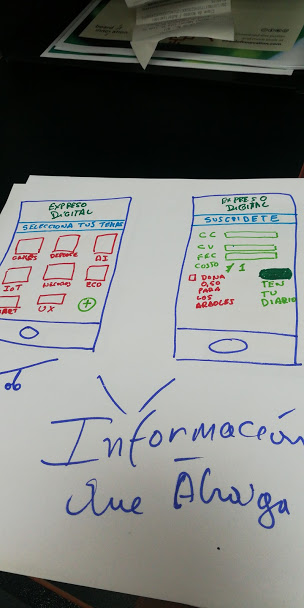 EXPRESO
DIGITAL
SELECCIONA TUS TEMAS
GAMES DEPORTE AI
IoT NEGOCIOS ECO
UX
+
EXPRESO
DIGITAL
SUSCRIBETE
CC
CV
FEC
COSTO $1
DONA
0,50
PARA
LOS
ARBOLES
TEN
TU
DIARIO
Información
que Ahorga